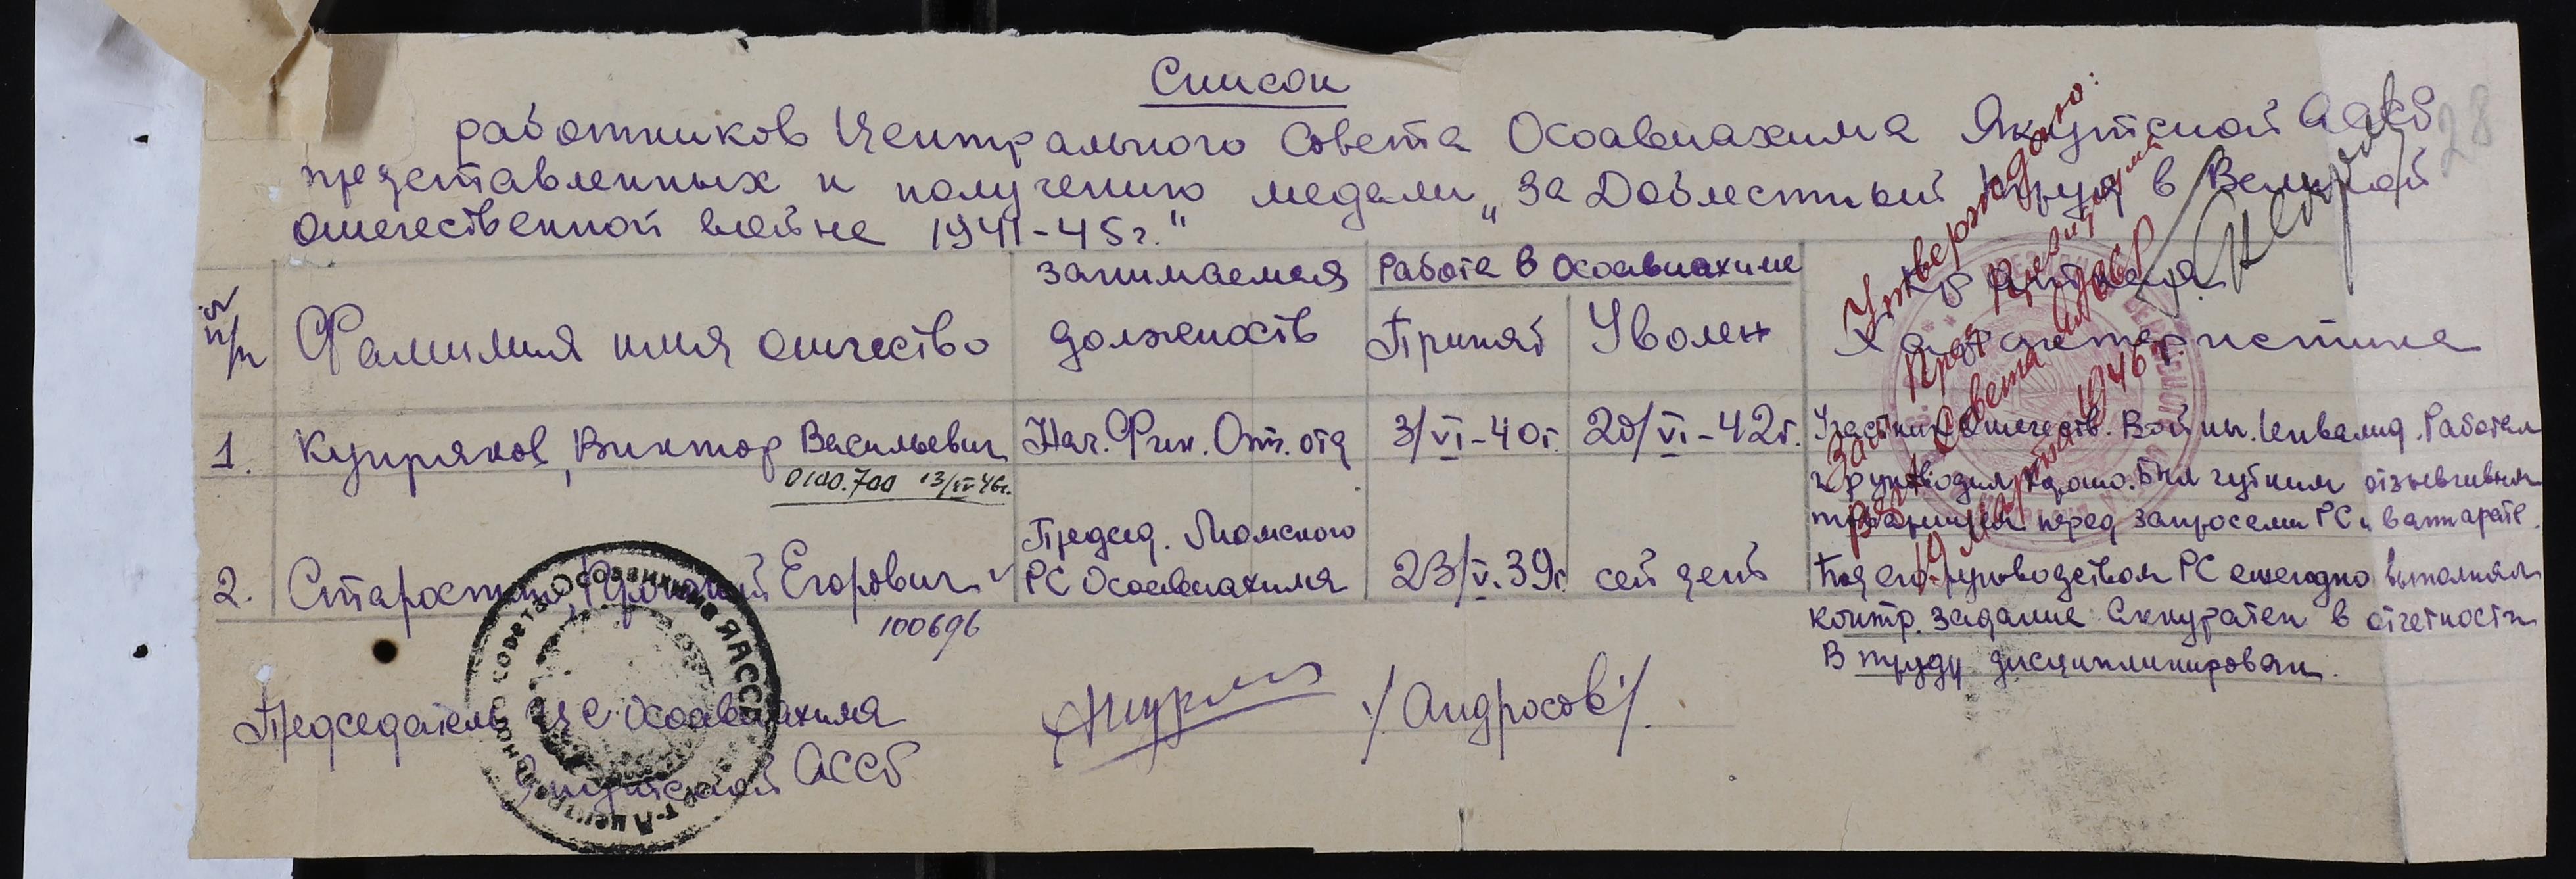 Список
работников Центрального Совета Осоавиахима Якутской АССР
представленных к получению медали "За Доблестный труд в Великой
отечественной войне 1941-45г."
№ п/п
Фамилия имя отчество
занимаемая должность
Работа в Осоавиахиме
Принят
Уволен
Краткая
Характеристика
1.
Купряков, Виктор Васильевич
0100.700 13/IV 46г.
Нач. Фин. отд
3/VI-40г.
20/VI-42г.
Участник Отечеств. Войны. Инвалид. Работал
и руководил хорошо. Был чутким отзывчивым
перед запросами РС и в аппарате.
2.
Старостин, Егорович
100696
Председ. Момского
РС Осоавиахима
23/V.39г.
сей день
Под его руководством РС ежегодно выполнял
контр. задание. Аккуратен в отчетности
В труду дисциплинирован.
Председатель ЦС Осоавиахима
Якутской АССР
/Андросов/.
Утверждаю:
Зам. Пред Президиума
Верх. Совета ЯАССР
19 марта 1946 г.
28